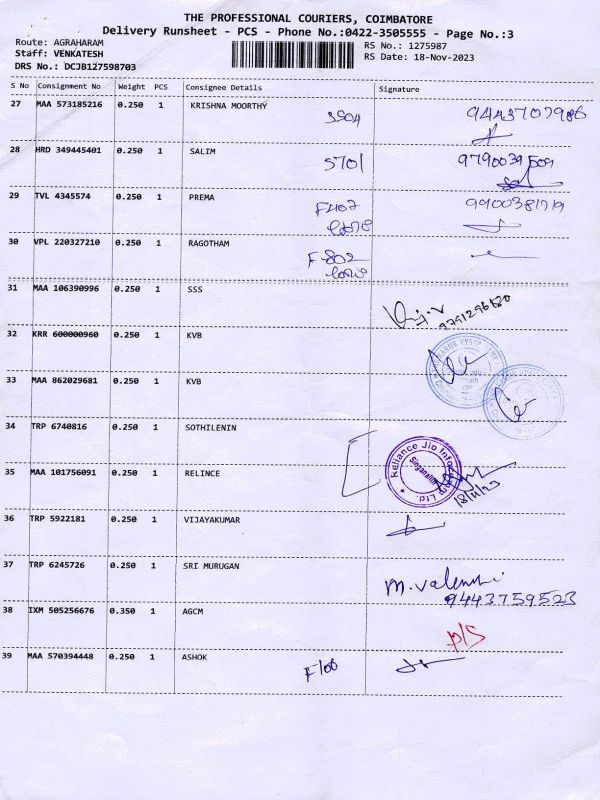 THE PROFESSIONAL COURIERS, COIMBATORE
Delivery Runsheet - PCS - Phone No.:0422-3505555 - Page No.:3
Route: AGRAHARAM
RS No.: 1275987
Staff: VENKATESH
RS Date: 18-Nov-2023
DRS No.: DCJB127598703
S No Consignment No Weight PCS Consignee Details Signature
27 MAA 573185216 0.250 1 KRISHNA MOORTHY
3504 9443707986
28 HRD 349445401 0.250 1 SALIM
5701 9790039509
29 TVL 4345574 0.250 1 PREMA
F402 9900381719
30 VPL 220327210 0.250 1 RAGOTHAM
F-802
31 MAA 106390996 0.250 1 SSS
9791296680
32 KRR 600000960 0.250 1 KVB
33 MAA 862029681 0.250 1 KVB
34 TRP 6740816 0.250 1 SOTHILENIN
Reliance Jio Infocomm Ltd.
Singanallur
35 MAA 101756091 0.250 1 RELINCE
18/11/23
36 TRP 5922181 0.250 1 VIJAYAKUMAR
37 TRP 6245726 0.250 1 SRI MURUGAN
M. Valenmi
9443759523
38 IXM 505256676 0.350 1 AGCM
P/S
39 MAA 570394448 0.250 1 ASHOK
F106